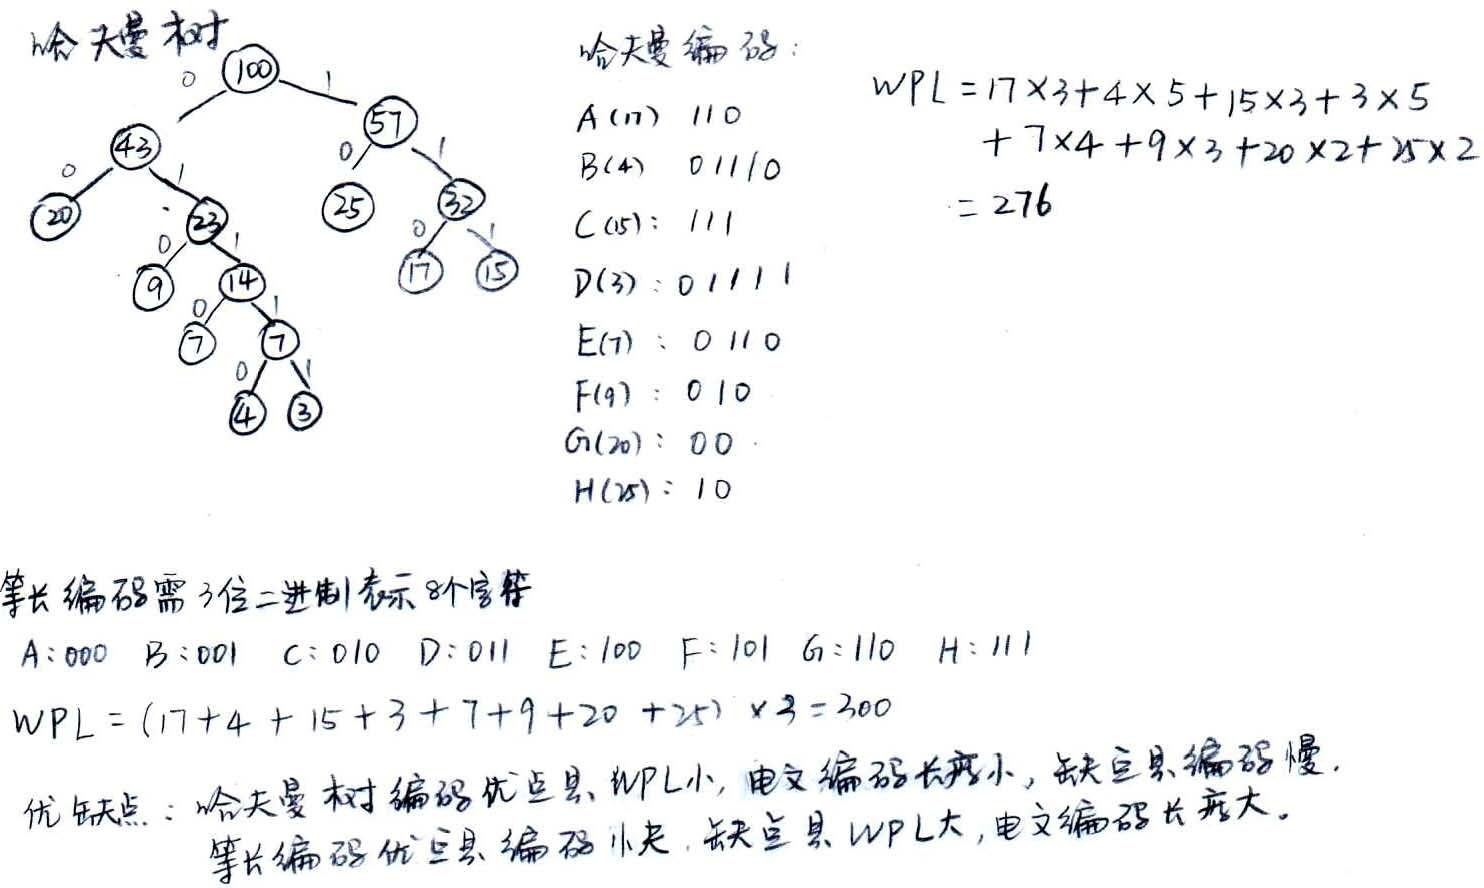 哈夫曼树
100
0 1
43 57
0 1 0 1
20 23 25 32
0 1 0 1
9 14 17 15
0 1
7 7
0 1
4 3
哈夫曼编码:
A(17) 110
B(4) 01110
C(15): 111
D(3): 01111
E(7): 0110
F(9): 010
G(20): 00
H(25): 10
WPL=17×3+4×5+15×3+3×5
+7×4+9×3+20×2+25×2
=276
等长编码需3位二进制表示8个字符
A:000 B:001 C:010 D:011 E:100 F:101 G:110 H:111
WPL=(17+4+15+3+7+9+20+25)×3=300
优缺点:哈夫曼树编码优点是WPL小,电文编码长度小,缺点是编码慢.
等长编码优点是编码快.缺点是WPL大,电文编码长度大。